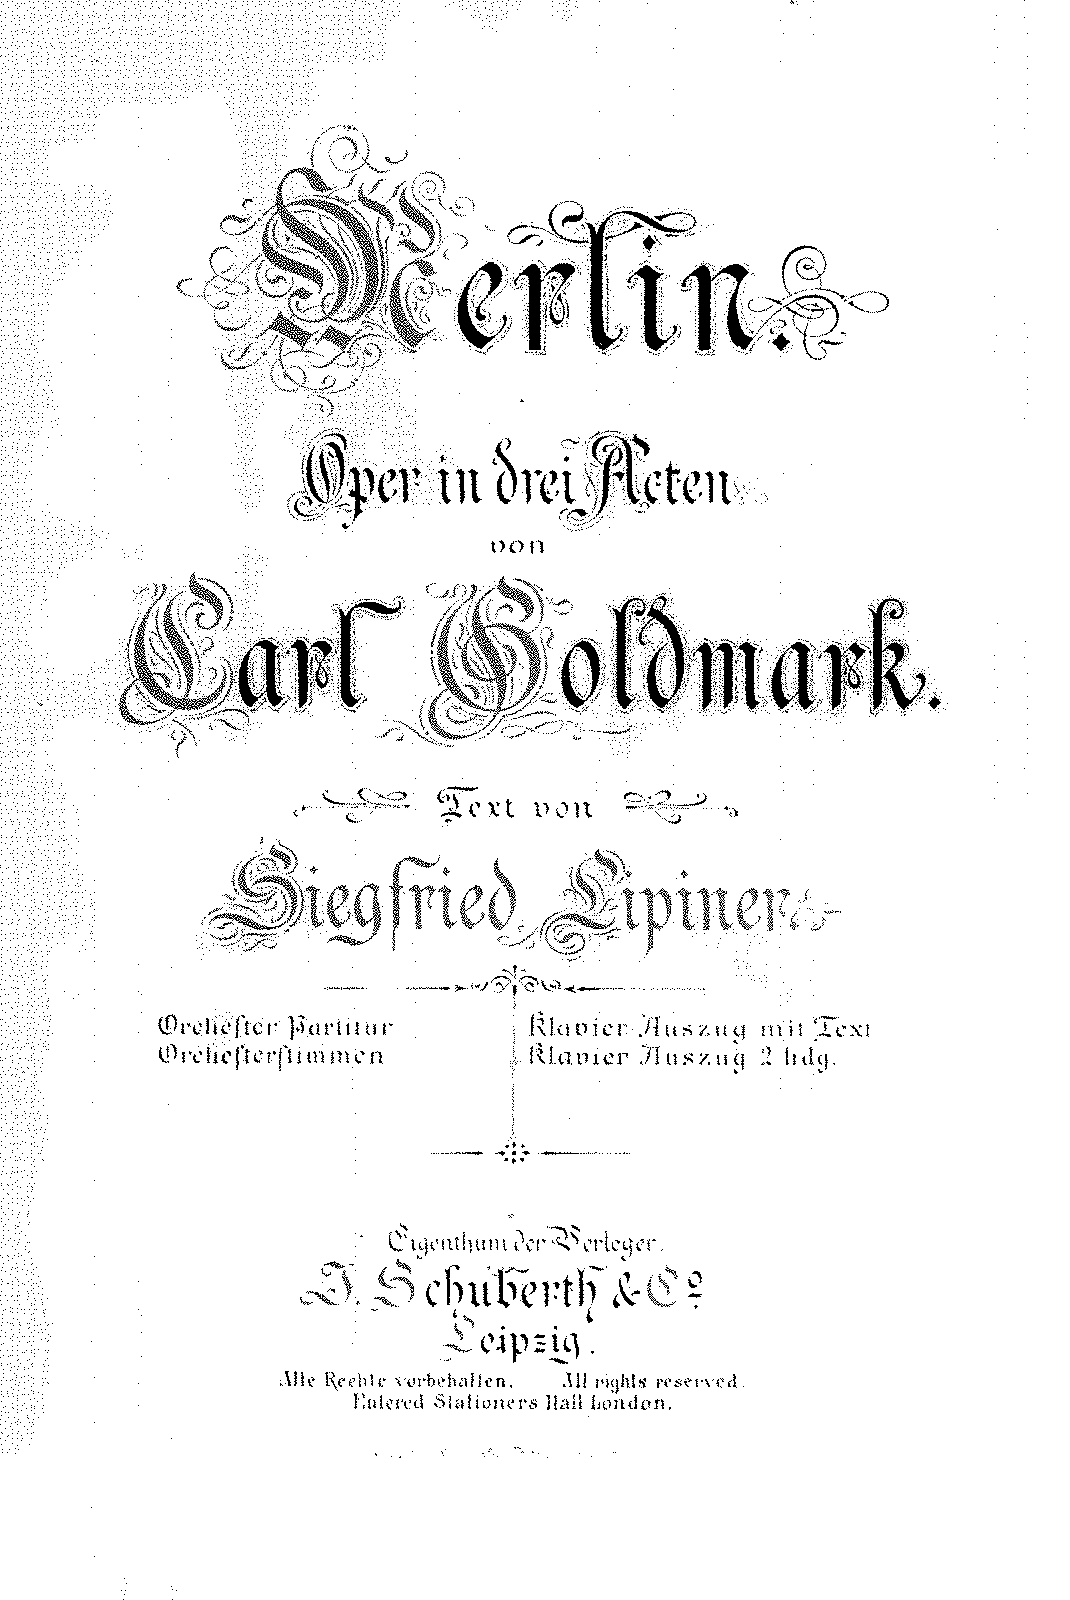 Merlin.
Oper in drei Acten
von
Carl Goldmark.
Text von
Siegfried Lipiner.
Orchester Partitur
Orchesterstimmen
Klavier Auszug mit Text
Klavier Auszug 2 hdg.
Eigenthum der Verleger.
J. Schuberth & Co
Leipzig.
Alle Rechte vorbehalten. All rights reserved.
Entered Stationers Hall London.